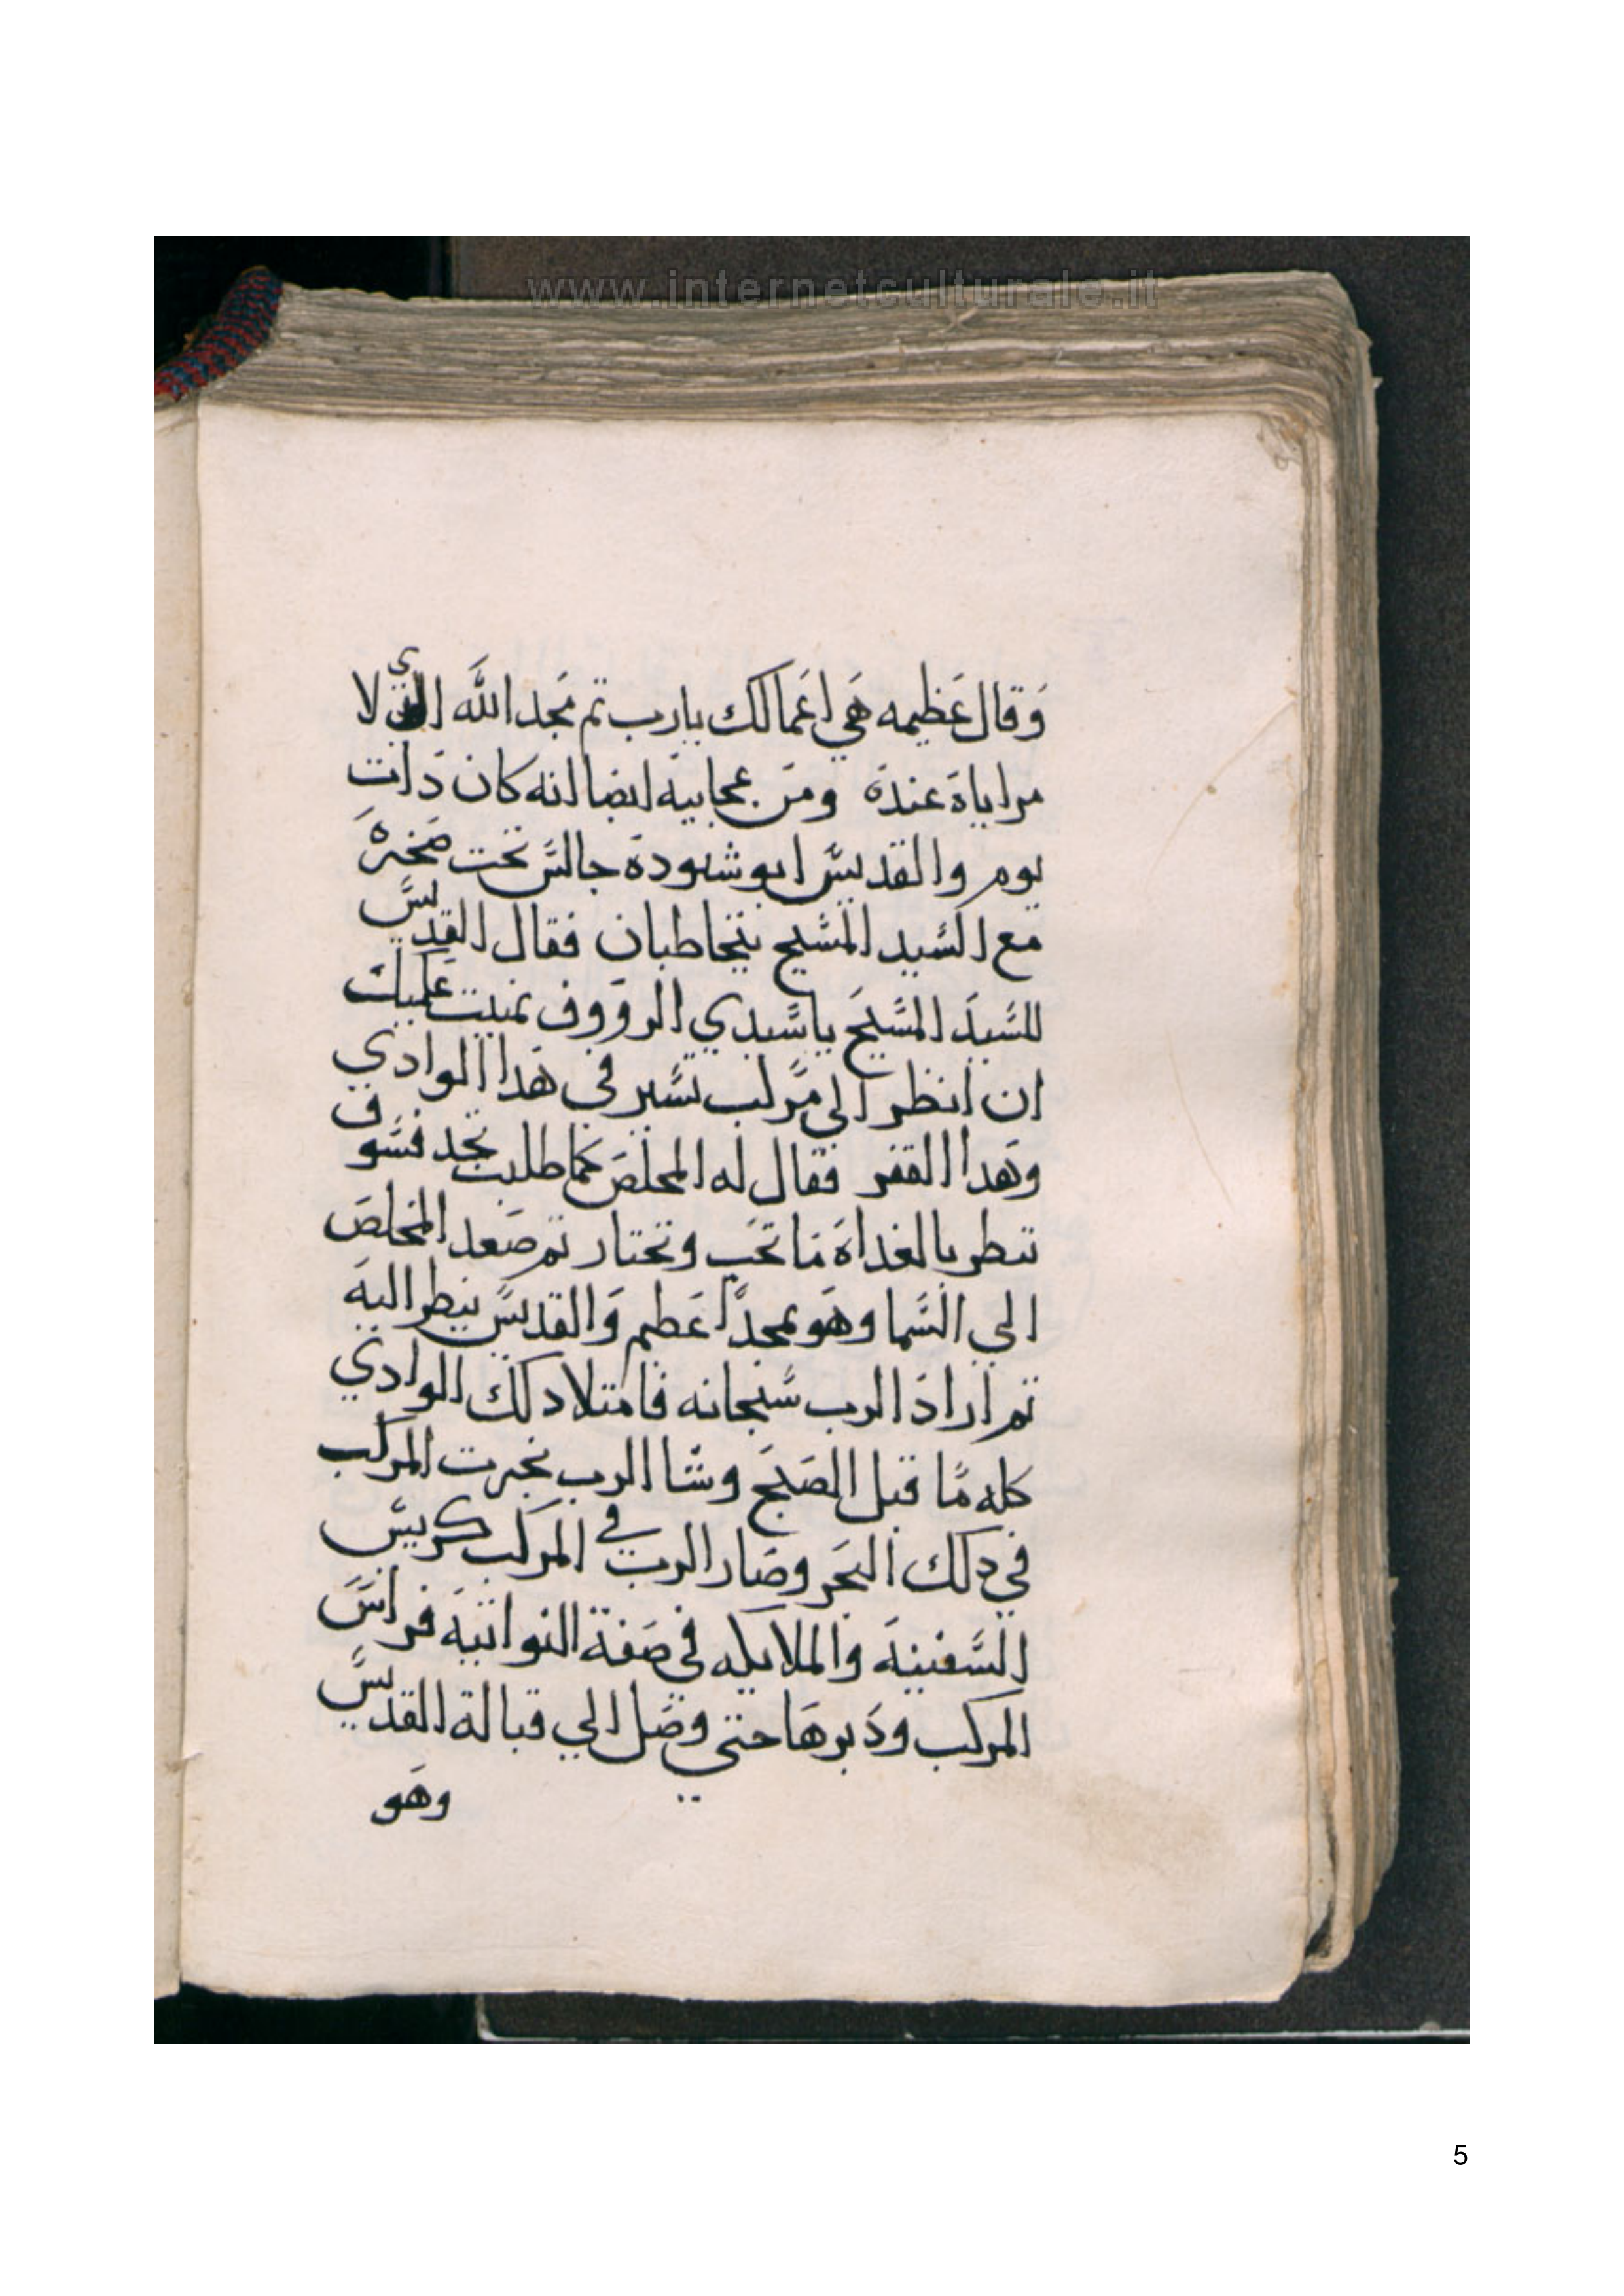 www.internetculturale.it
وقال عظيمه هي اعمالك يارب تم مجد الله الذي لا
مراياة عندة ومن عجاييه ايضا انه كان دات
يوم والقديس ابو شنودة جالس تحت صخره
مع السيد المسيح يتخاطبان فقال القديس
للسيد المسيح ياسيدي الرووف تمنيت عليك
ان انظر الي مركب تسير في هدا الوادي
وهدا القفر فقال له المخلص كما طلبت تجد فسوف
تنطر بالغداة ما تحب وتختار تم صعد المخلص
الي السما وهو بمجدا عطم والقديس ينطر اليه
تم اراد الرب سبحانه فامتلا دلك الوادي
كله ما قبل الصبح وشا الرب نجرت المركب
في دلك البحر وصار الرب في المركب كرييس
السفينة والملايكه في صفة النواتية فراس
المركب ودبرها حتي وصل الي قبالة القديس
وهو
5